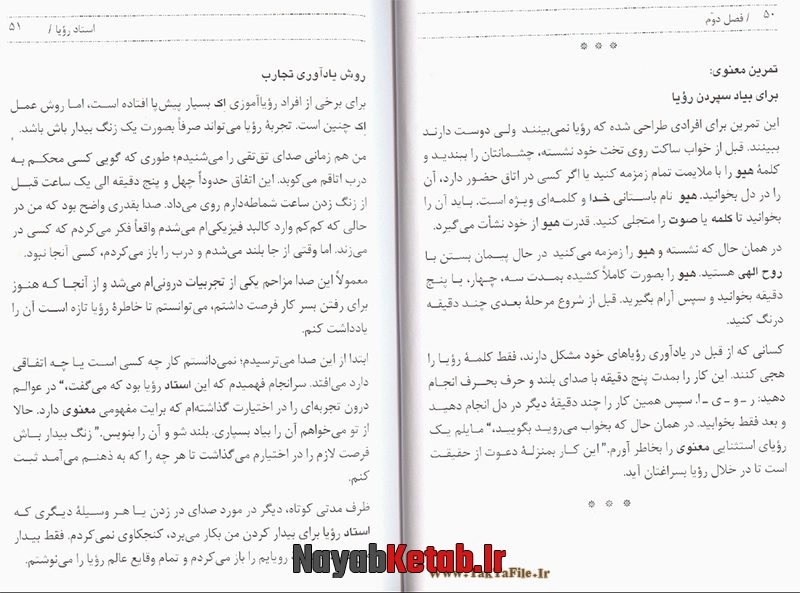 ۵۰ / فصل دوّم
* * *
تمرین معنوی:
برای بیاد سپردن رؤیا
این تمرین برای افرادی طراحی شده که رؤیا نمی‌بینند ولی دوست دارند
ببینند. قبل از خواب ساکت روی تخت خود نشسته، چشمانتان را ببندید و
کلمهٔ هیو را با ملایمت تمام زمزمه کنید یا اگر کسی در اتاق حضور دارد، آن
را در دل بخوانید. هیو نام باستانی خدا و کلمه‌ای ویژه است. باید آن را
بخوانید تا کلمه یا صوت را متجلی کنید. قدرت هیو از خود نشأت می‌گیرد.
در همان حال که نشسته و هیو را زمزمه می‌کنید در حال پیمان بستن با
روح الهی هستید. هیو را بصورت کاملاً کشیده بمدت سه، چهار، یا پنج
دقیقه بخوانید و سپس آرام بگیرید. قبل از شروع مرحلهٔ بعدی چند دقیقه
درنگ کنید.
کسانی که از قبل در یادآوری رؤیاهای خود مشکل دارند، فقط کلمهٔ رؤیا را
هجی کنند. این کار را بمدت پنج دقیقه با صدای بلند و حرف بحرف انجام
دهید: ر ـ و ـ ی ـ ا. سپس همین کار را چند دقیقهٔ دیگر در دل انجام دهید
و بعد فقط بخوابید. در همان حال که بخواب می‌روید بگویید، “مایلم یک
رؤیای استثنایی معنوی را بخاطر آورم.” این کار بمنزلهٔ دعوت از حقیقت
است تا در خلال رؤیا بسراغتان آید.
* * *
استاد رؤیا / ۵۱
روش یادآوری تجارب
برای برخی از افراد رؤیاآموزی اک بسیار پیش‌پا افتاده است، اما روش عمل
اک چنین است. تجربهٔ رؤیا می‌تواند صرفاً بصورت یک زنگ بیدار باش باشد.
من هم زمانی صدای تق‌تقی را می‌شنیدم؛ طوری که گویی کسی محکم به
درب اتاقم می‌کوبد. این اتفاق حدوداً چهل و پنج دقیقه الی یک ساعت قبل
از زنگ زدن ساعت شماطه‌دارم روی می‌داد. صدا بقدری واضح بود که من در
حالی که کم‌کم وارد کالبد فیزیکی‌ام می‌شدم واقعاً فکر می‌کردم که کسی در
می‌زند. اما وقتی از جا بلند می‌شدم و درب را باز می‌کردم، کسی آنجا نبود.
معمولاً این صدا مزاحم یکی از تجربیات درونی‌ام می‌شد و از آنجا که هنوز
برای رفتن بسر کار فرصت داشتم، می‌توانستم تا خاطرهٔ رؤیا تازه است آن را
یادداشت کنم.
ابتدا از این صدا می‌ترسیدم؛ نمی‌دانستم کار چه کسی است یا چه اتفاقی
دارد می‌افتد. سرانجام فهمیدم که این استاد رؤیا بود که می‌گفت، “در عوالم
درون تجربه‌ای را در اختیارت گذاشته‌ام که برایت مفهومی معنوی دارد. حالا
از تو می‌خواهم آن را بیاد بسپاری. بلند شو و آن را بنویس.” زنگ بیدار باش
فرصت لازم را در اختیارم می‌گذاشت تا هر چه را که به ذهنم می‌آمد ثبت
کنم.
ظرف مدتی کوتاه، دیگر در مورد صدای در زدن یا هر وسیلهٔ دیگری که
استاد رؤیا برای بیدار کردن من بکار می‌برد، کنجکاوی نمی‌کردم. فقط بیدار
رویایم را باز می‌کردم و تمام وقایع عالم رؤیا را می‌نوشتم.
NayabKetab.Ir
www.TakTaFile.Ir